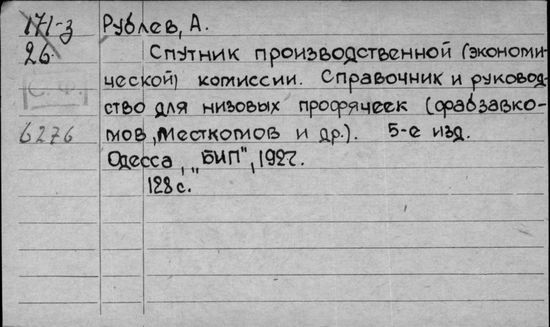 171-з Рублев, А.
26. Спутник производственной (экономи-
ческой) комиссии. Справочник и руковод-
[С. Ф.] ство для низовых профячеек (фабзавко-
6276 мов, месткомов и др.). 5-е изд.
Одесса, "БИП", 1927.
128 с.